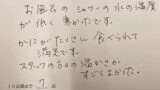 お風呂の シャワーの 水の温度
が 低く 寒かったです。
かにが たくさん 食べられて
満足です。
スタッフの方々の 温かさが
すごしよかった。
10点満点で 7 点